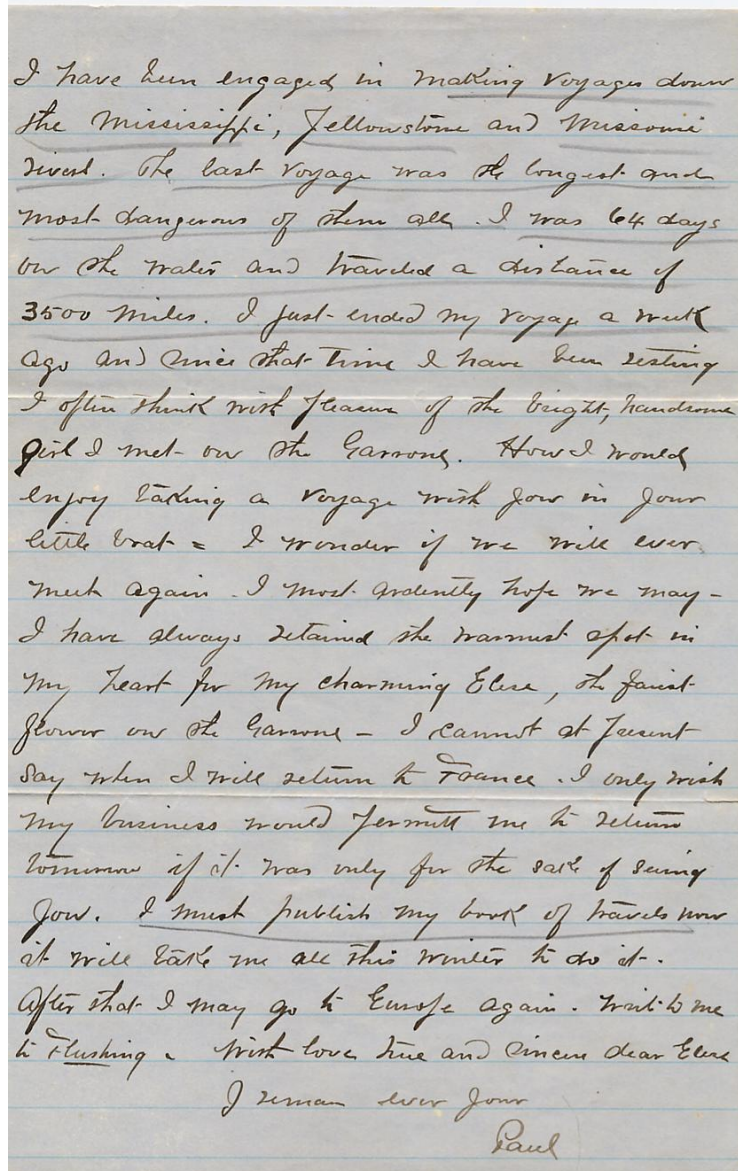 I have been engaged in making voyages down
the Mississippi, Yellowstone and Missouri
rivers. The last voyage was the longest and
most dangerous of them all. I was 64 days
on the water and traveled a distance of
3500 miles. I just ended my voyage a week
ago and since that time I have been resting
I often think with pleasure of the bright, handsome
girl I met on the Garrone. How I would
enjoy taking a voyage with you in your
little boat = I wonder if we will ever
meet again. I most ardently hope we may -
I have always retained the warmest spot in
my heart for my charming Elese, the fairest
flower on the Garrone - I cannot at present
say when I will return to France. I only wish
my business would permitt me to return
tomorrow if it was only for the sake of seeing
you. I must publish my book of travels now
it will take me all this winter to do it.
After that I may go to Europe again. Write to me
to Flushing. With love true and sincere dear Elese
I remain ever your
Paul